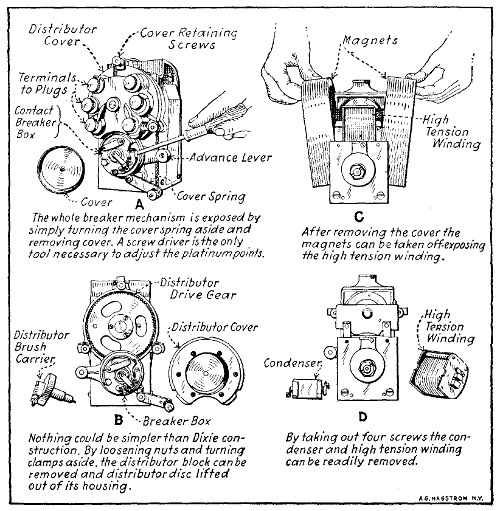 Distributor
Cover
Cover Retaining
Screws
Terminals
to Plugs
Contact
Breaker
Box
Advance Lever
Cover
Cover Spring
A
The whole breaker mechanism is exposed by
simply turning the cover spring aside and
removing cover. A screw driver is the only
tool necessary to adjust the platinum points.
Magnets
High
Tension
Winding
C
After removing the cover the
magnets can be taken off exposing
the high tension winding.
Distributor
Drive Gear
Distributor
Brush
Carrier
Distributor Cover
B
Breaker Box
Nothing could be simpler than Dixie con-
struction. By loosening nuts and turning
clamps aside, the distributor block can be
removed and distributor disc lifted
out of its housing.
High
Tension
Winding
Condenser
D
By taking out four screws the con-
denser and high tension winding
can be readily removed.
A.G. HAGSTROM N.Y.